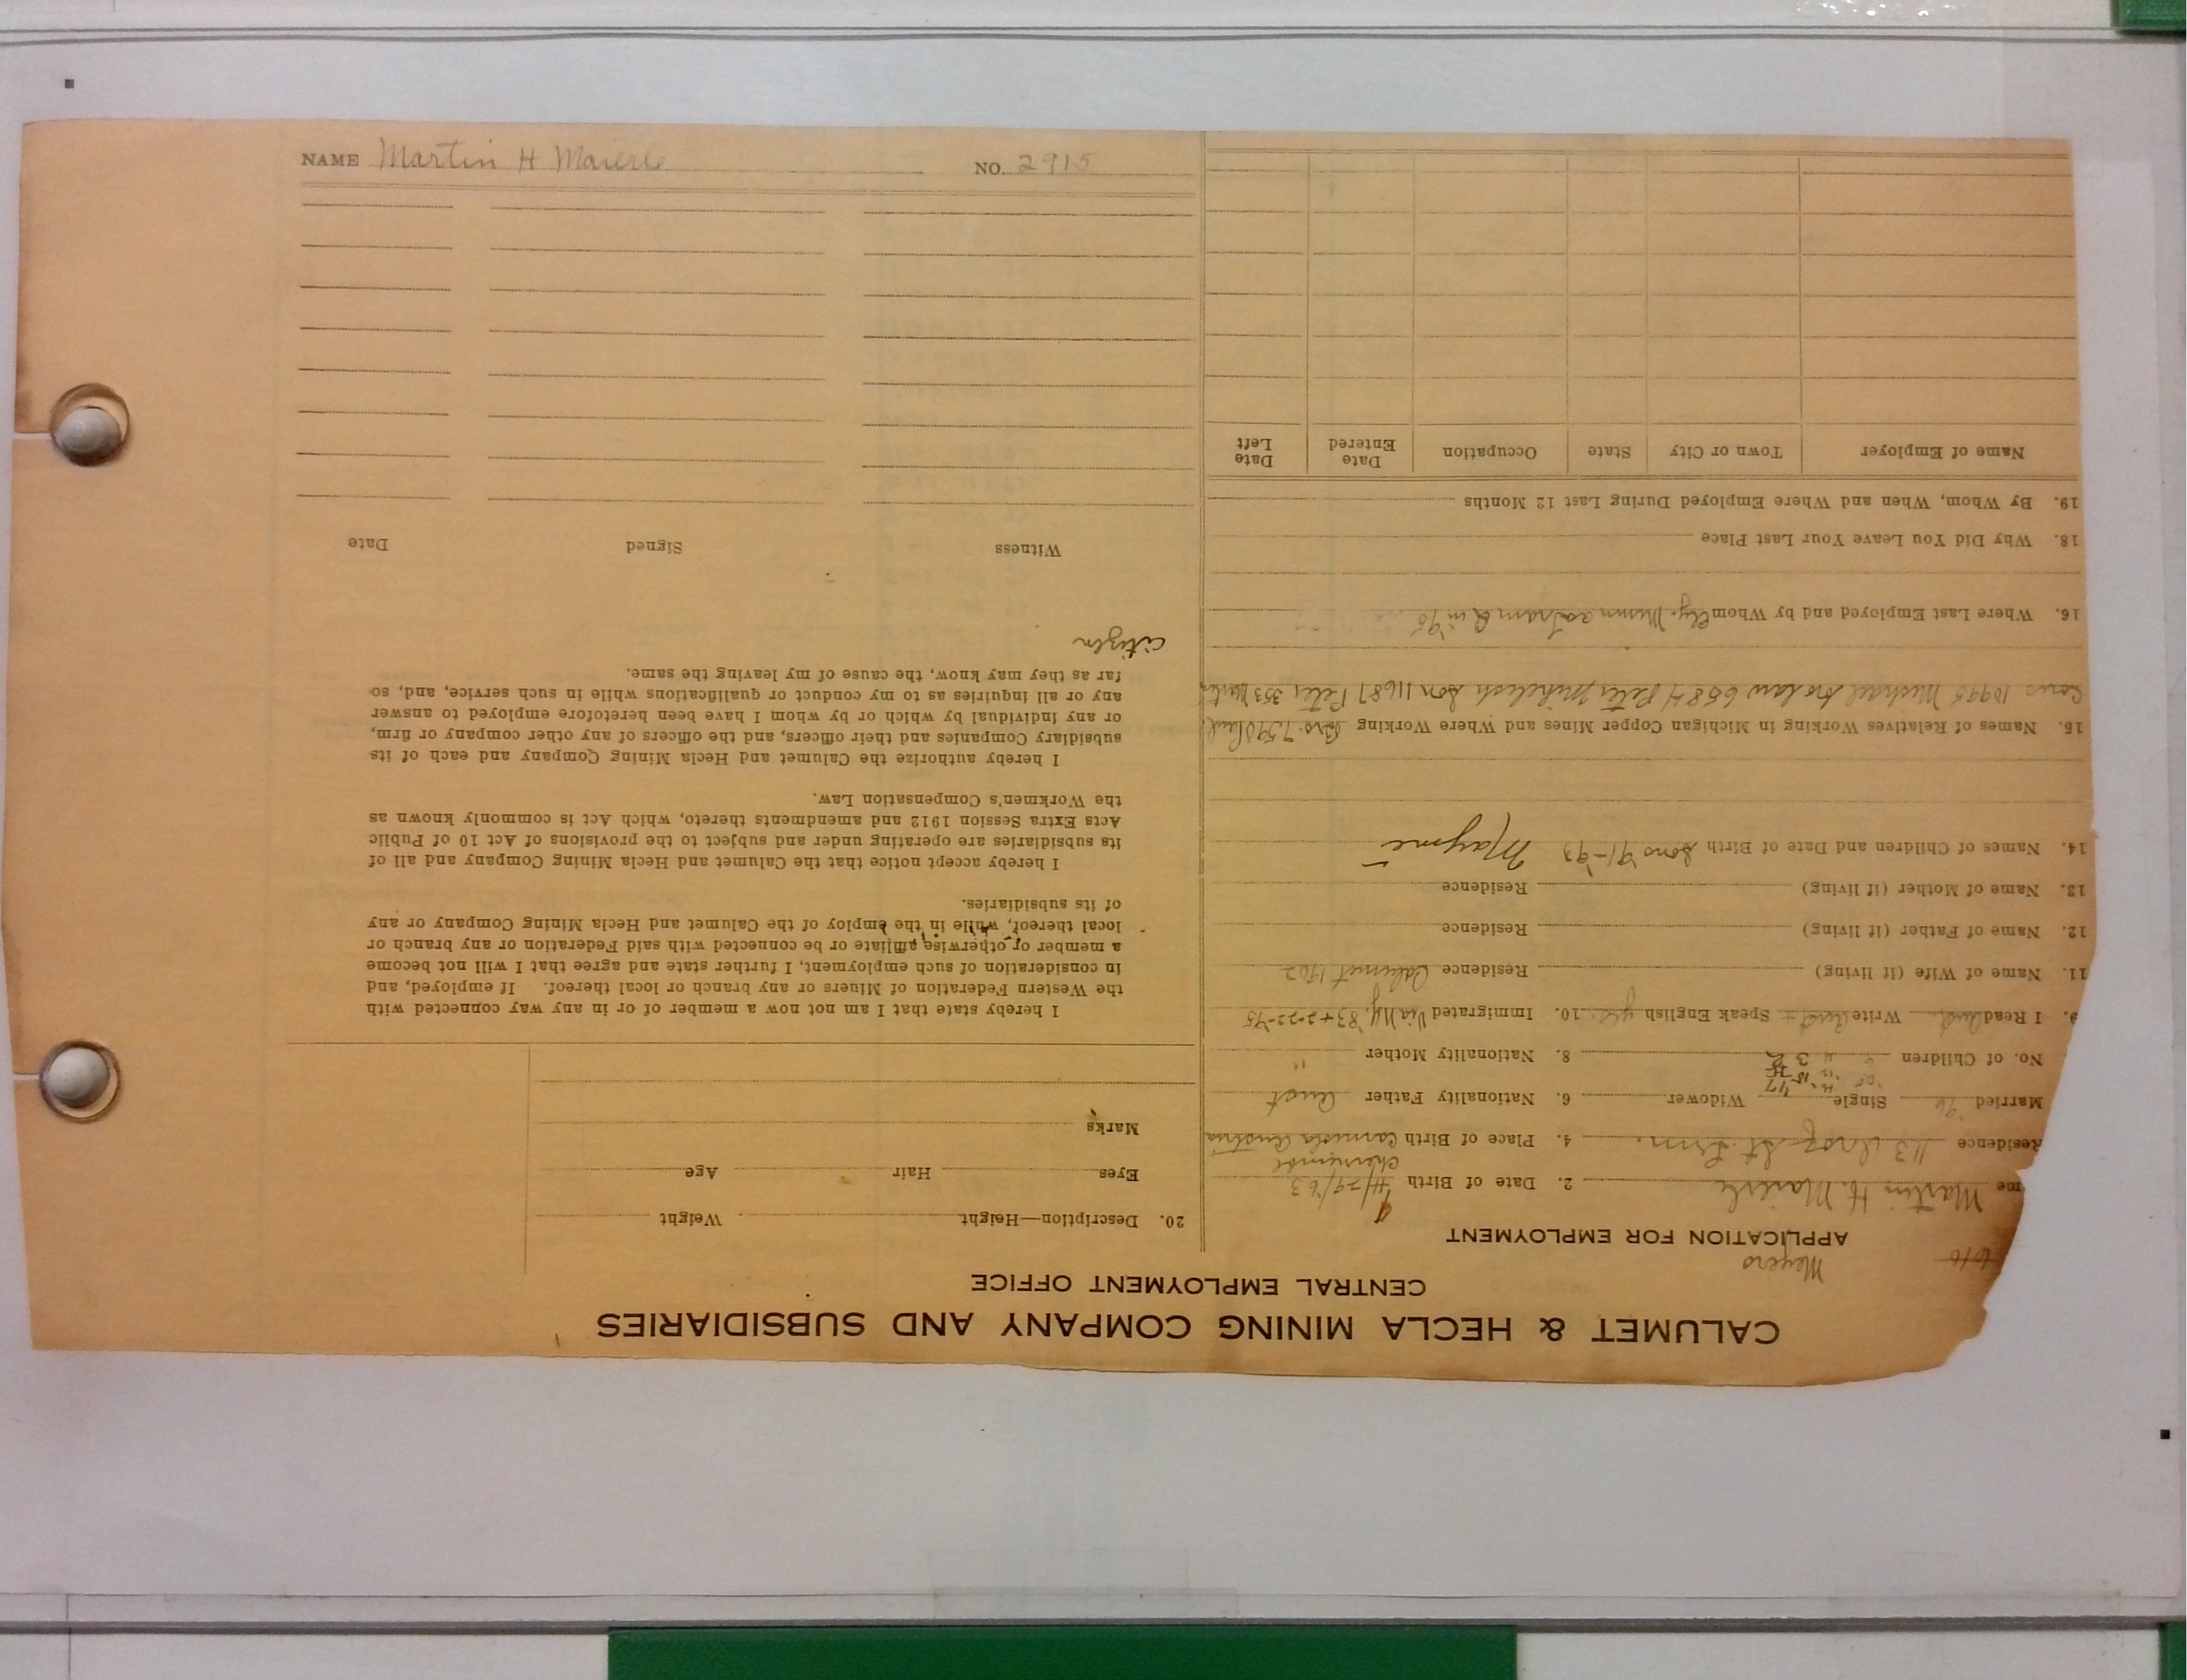 NAME Martin H Maierle NO. 2915
CALUMET & HECLA MINING COMPANY AND SUBSIDIARIES
CENTRAL EMPLOYMENT OFFICE
Meyers
APPLICATION FOR EMPLOYMENT
me Martin H. Maierle 2. Date of Birth /29/63
Residence 113 St. 4. Place of Birth Austria
Married 96 Single Widower 6. Nationality Father Aust
No. of Children 8. Nationality Mother "
9. I Read Aust Write Aust Speak English yes 10. Immigrated Via NY. '83 + 2-22-95
11. Name of Wife (if living) Residence Calumet 1902
12. Name of Father (if living) Residence
13. Name of Mother (if living) Residence
14. Names of Children and Date of Birth Sons 91-93 Mayme
15. Names of Relatives Working in Michigan Copper Mines and Where Working Bro. 7590 Paul
10995 Michael bro law 6584 Peter Mihelich Son 11687 Peter 353
16. Where Last Employed and by Whom Ely. Minn as tram in 95
18. Why Did You Leave Your Last Place
19. By Whom, When and Where Employed During Last 12 Months
Name of Employer Town or City State Occupation Date Entered Date Left
20. Description—Height Weight
Eyes Hair Age
Marks
I hereby state that I am not now a member of or in any way connected with
the Western Federation of Miners or any branch or local thereof. If employed, and
in consideration of such employment, I further state and agree that I will not become
a member or otherwise affiliate or be connected with said Federation or any branch or
local thereof, while in the employ of the Calumet and Hecla Mining Company or any
of its subsidiaries.
I hereby accept notice that the Calumet and Hecla Mining Company and all of
its subsidiaries are operating under and subject to the provisions of Act 10 of Public
Acts Extra Session 1912 and amendments thereto, which Act is commonly known as
the Workmen's Compensation Law.
I hereby authorize the Calumet and Hecla Mining Company and each of its
subsidiary Companies and their officers, and the officers of any other company or firm,
or any individual by which or by whom I have been heretofore employed to answer
any or all inquiries as to my conduct or qualifications while in such service, and, so
far as they may know, the cause of my leaving the same.
citizen
Witness Signed Date